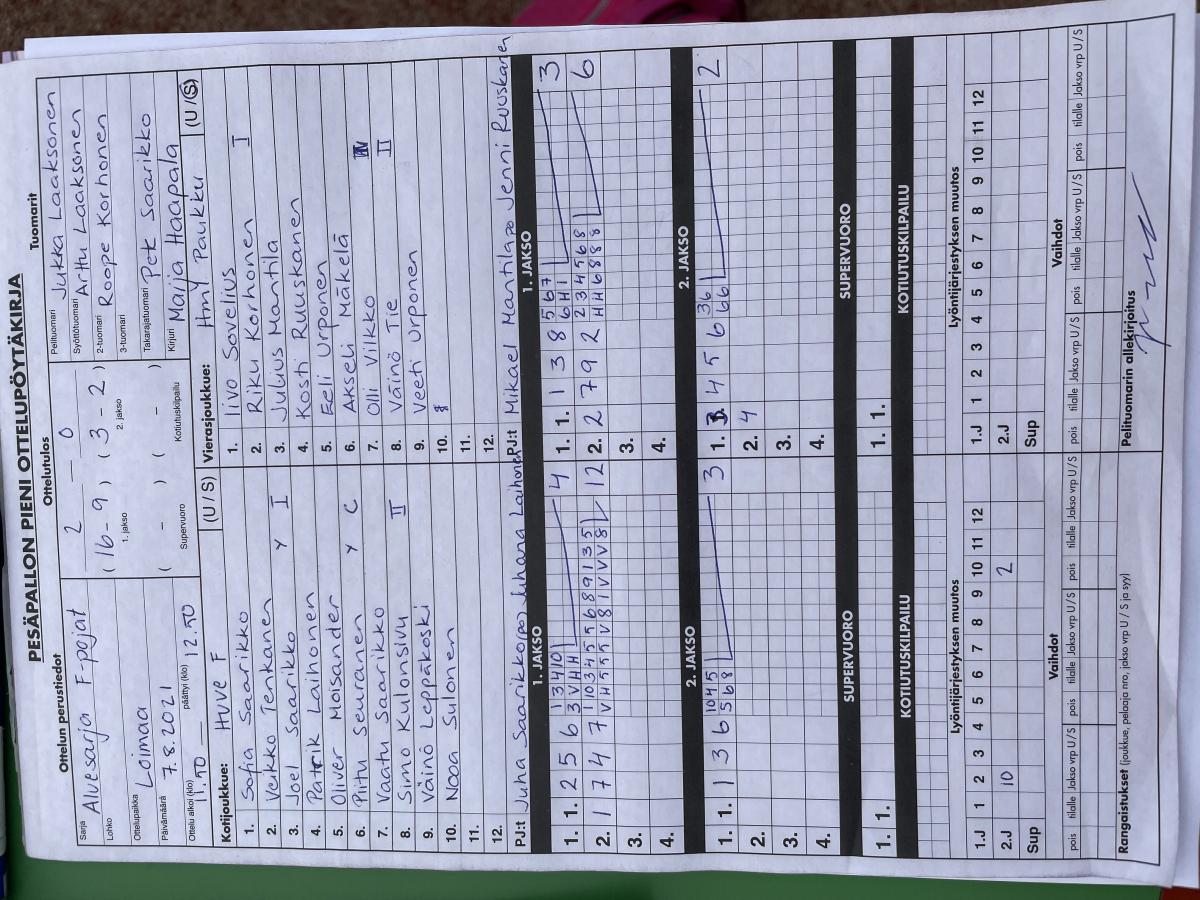 PESÄPALLON PIENI OTTELUPÖYTÄKIRJA
Ottelun perustiedot
Sarja Aluesarja F-pojat
Lohko
Ottelupaikka Loimaa
Päivämäärä 7.8.2021
Ottelu alkoi (klo) 11.50 päättyi (klo) 12.50
Ottelutulos
2 – 0
(16 – 9) (3 – 2)
1. jakso 2. jakso
( – ) ( – )
Supervuoro Kotiutuskilpailu
Tuomarit
Pelituomari Jukka Laaksonen
Syöttötuomari Arttu Laaksonen
2-tuomari Roope Korhonen
3-tuomari
Takarajatuomari Pek Saarikko
Kirjuri Maija Haapala
Kotijoukkue: HuVe F (U / S)
1. Sofia Saarikko
2. Veikko Tenkanen
3. Joel Saarikko Y I
4. Patrik Laihonen
5. Oliver Moisander
6. Piitu Seuranen Y C
7. Vaatu Saarikko
8. Simo Kulonsivu II
9. Väinö Leppäkoski
10. Nooa Sulonen
11.
12.
PJ:t Juha Saarikko(po) Juhana Laihonen
Vierasjoukkue: Hmy Paukku (U / S)
1. Iivo Sovelius
2. Riku Korhonen I
3. Juluus Mantila
4. Kosti Ruuskanen
5. Eeli Urponen
6. Akseli Mäkelä
7. Olli Vilkko
8. Väinö Tie II
9. Veeti Urponen
10.
11.
12.
PJ:t Mikael Mantila po Jenni Ruuskanen
1. JAKSO
1. 1. 2 5 6 1 3 4 10 4
3 V H H
2. 1 7 4 7 1 10 3 4 5 5 6 8 9 1 3 5 12
V H 5 5 5 V 8 1 V V V 8
3.
4.
1. JAKSO
1. 1. 1 3 8 5 6 7 3
6 H 1
2. 2 7 9 2 2 3 4 5 6 8 6
H H 6 8 8 8
3.
4.
2. JAKSO
1. 1. 1 3 6 10 4 5 3
5 6 8
2.
3.
4.
2. JAKSO
1. 3. 4 5 6 3 6 2
6 6
2. 4
3.
4.
SUPERVUORO
1. 1.
SUPERVUORO
1. 1.
KOTIUTUSKILPAILU
KOTIUTUSKILPAILU
Lyöntijärjestyksen muutos
1.J 1 2 3 4 5 6 7 8 9 10 11 12
2.J 10 2
Sup
Lyöntijärjestyksen muutos
1.J 1 2 3 4 5 6 7 8 9 10 11 12
2.J
Sup
Vaihdot
pois tilalle Jakso vrp U / S pois tilalle Jakso vrp U / S pois tilalle Jakso vrp U / S
Vaihdot
pois tilalle Jakso vrp U / S pois tilalle Jakso vrp U / S pois tilalle Jakso vrp U / S
Rangaistukset (joukkue, pelaaja nro, jakso vrp U / S ja syy)
Pelituomarin allekirjoitus